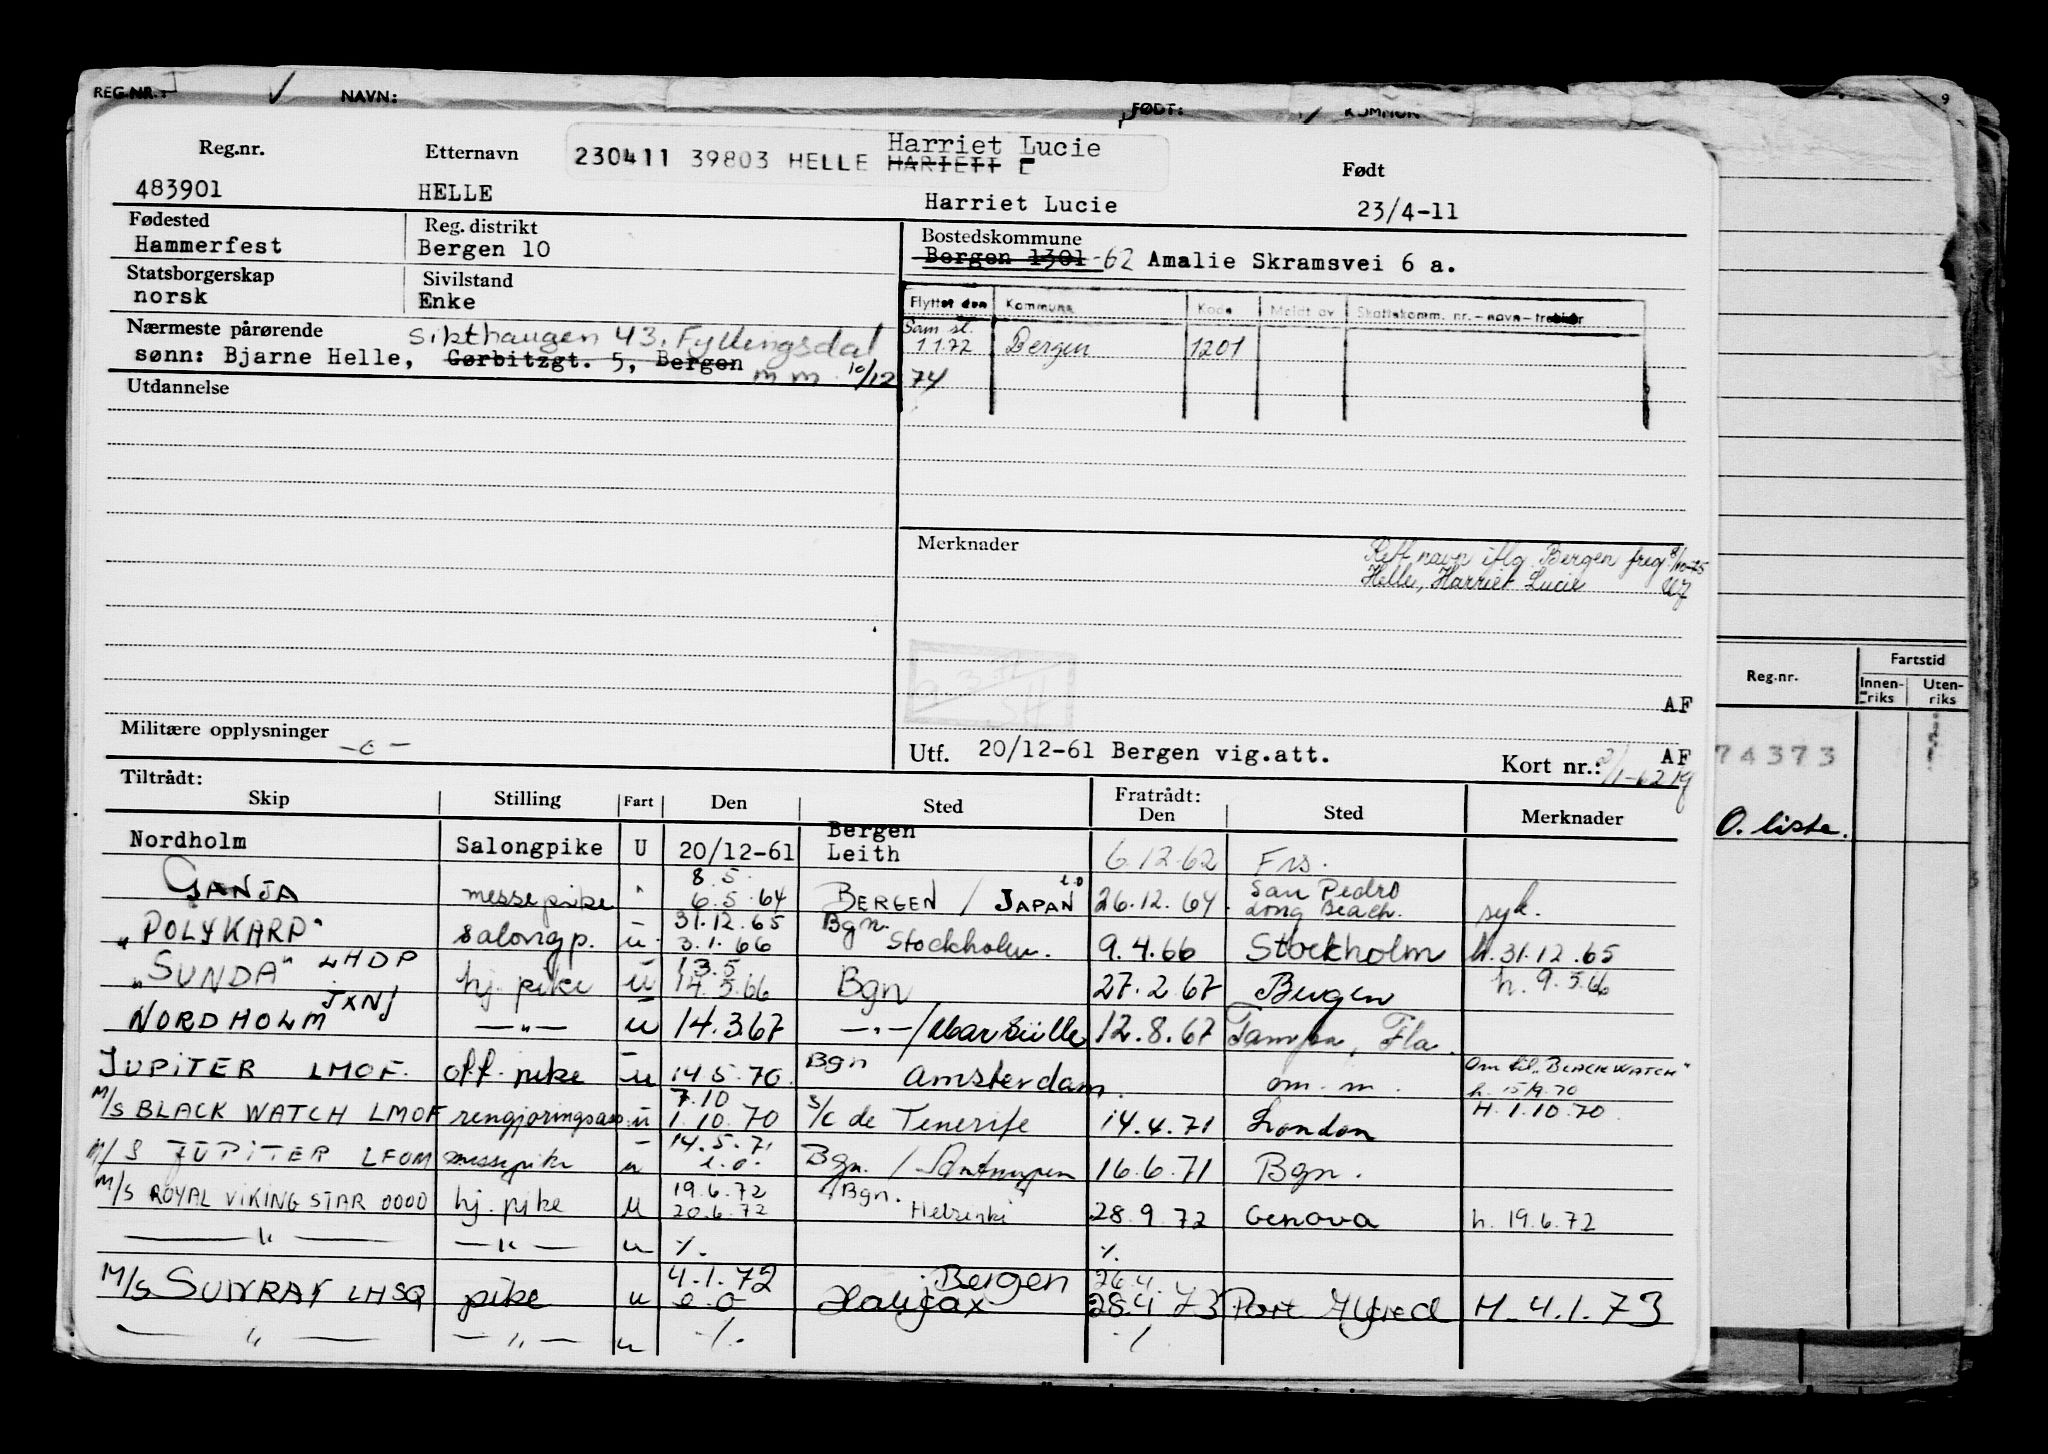 REG.NR.: NAVN: FØDT: KOMMUN 9
Harriet Lucie
230411 39803 HELLE HARIETT L
Reg.nr. Etternavn Født
483901 HELLE Harriet Lucie 23/4-11
Fødested Reg. distrikt Bostedskommune
Hammerfest Bergen 10 Bergen 1301 -62 Amalie Skramsvei 6 a.
Statsborgerskap Sivilstand
norsk Enke
Flyttet den Kommune Kode Meldt av Skattekomm. nr. - navn -
Sam. sl.
1.1.72 Bergen 1201
Nærmeste pårørende Sikthaugen 43, Fyllingsdal
sønn: Bjarne Helle, Gørbitzgt. 5, Bergen
m m 10/12 74
Utdannelse
Merknader
Rett navn iflg. Bergen freg. 8/10-75
Helle, Harriet Lucie
AF
Militære opplysninger
Utf. 20/12-61 Bergen vig.att. Kort nr.: AF
Tiltrådt: Fratrådt:
Skip Stilling Fart Den Sted Den Sted Merknader
Nordholm Salongpike U 20/12-61 Bergen Leith 6.12.62 Frs.
GANJA messepike " 8.5. 6.5.64 BERGEN / JAPAN i.o 26.12.64. San Pedro Long Beach. syk.
"POLYKARP" salongp. u 31.12.65 3.1.66 Bgn. Stockholm. 9.4.66 Stockholm h.31.12.65
"SUNDA" LHDP hj. pike u 13.5 14.5.66 Bgn 27.2.67 Bergen h. 9.5.66
NORDHOLM JXNJ — " — u 14.3.67 — " — / Marseille 12.8.67 Tampa, Fla.
JUPITER LMOF. off. pike u 14.5.70. Bgn Amsterdam. om. m. Om til "BLACK WATCH" h. 15/9.70
M/S BLACK WATCH LMOF rengjøringsass u 7.10 1.10.70 S/C de Tenerife 14.4.71 London H. 1.10.70.
M/S JUPITER LFOM messepike u 14.5.71 i.o. Bgn. / Antwerpen 16.6.71 Bgn.
M/S ROYAL VIKING STAR OOOO hj. pike u 19.6.72 20.6.72 Bgn. Helsinki 28.9.72 Genova h. 19.6.72
— " — — " — u %. %.
M/S SUNRAY LHSQ pike u 4.1.72 e.o Bergen Halifax 26.4. 28.4.73 Port Alfred H. 4.1.73
— " — — " — u %. %
Reg.nr. Fartstid
Innen-riks Uten-riks
74373
O. liste.